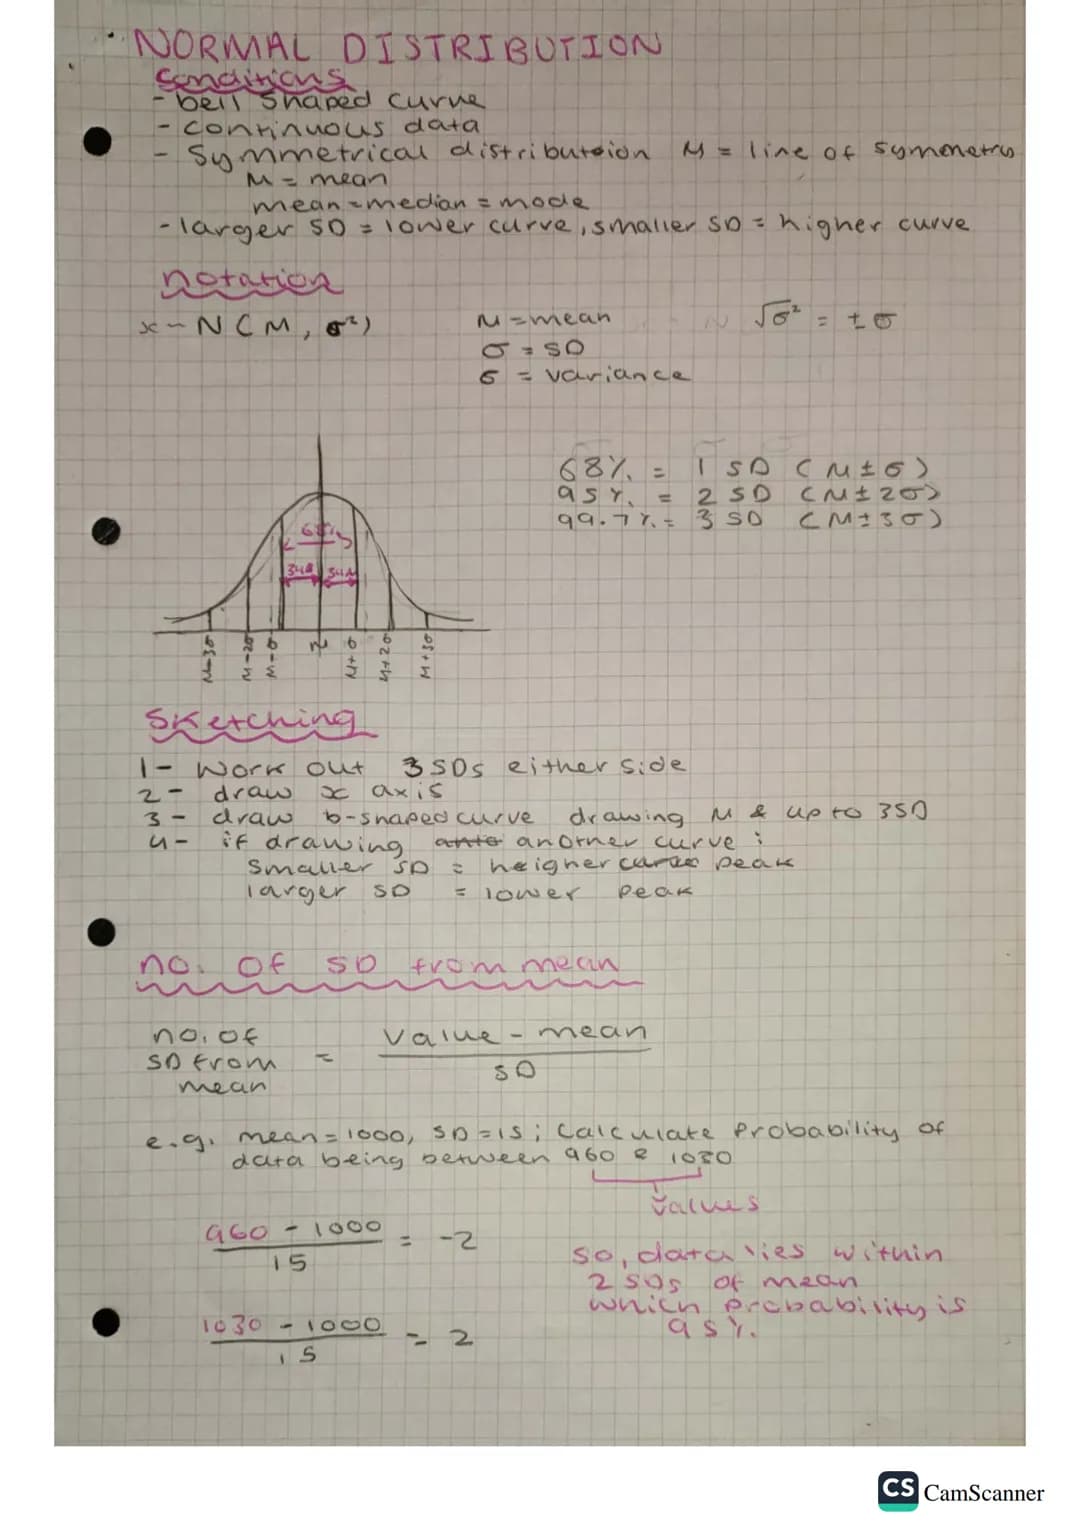 NORMAL DISTRIBUTION
Conditions
- bell shaped curve
- continuous data
- Symmetrical distributoion M = line of symmetry
M = mean
mean = median = mode
- larger SD = lower curve, smaller SD = higher curve
notation
x ~ N (M, σ²)
M = mean
σ = SD
σ = variance
√σ² = ± σ
68% = 1 SD (M ± σ)
95% = 2 SD (M ± 2σ)
99.7% = 3 SD (M ± 3σ)
68%
34% 34%
M-3σ M-2σ M-σ M M+σ M+2σ M+3σ
Sketching
1- Work out 3 SDs either side
2- draw x axis
3- draw b-shaped curve drawing M & up to 3SD
4- if drawing another curve :
Smaller SD = heigher peak
larger SD = lower peak
no. of SD from mean
no. of SD from mean = Value - mean / SD
e.g. mean = 1000, SD = 15; Calculate Probability of
data being between 960 & 1030
values
960 - 1000 / 15 = -2
so, data lies within
2 SDs of mean
which probability is
95%.
1030 - 1000 / 15 = 2
CS CamScanner